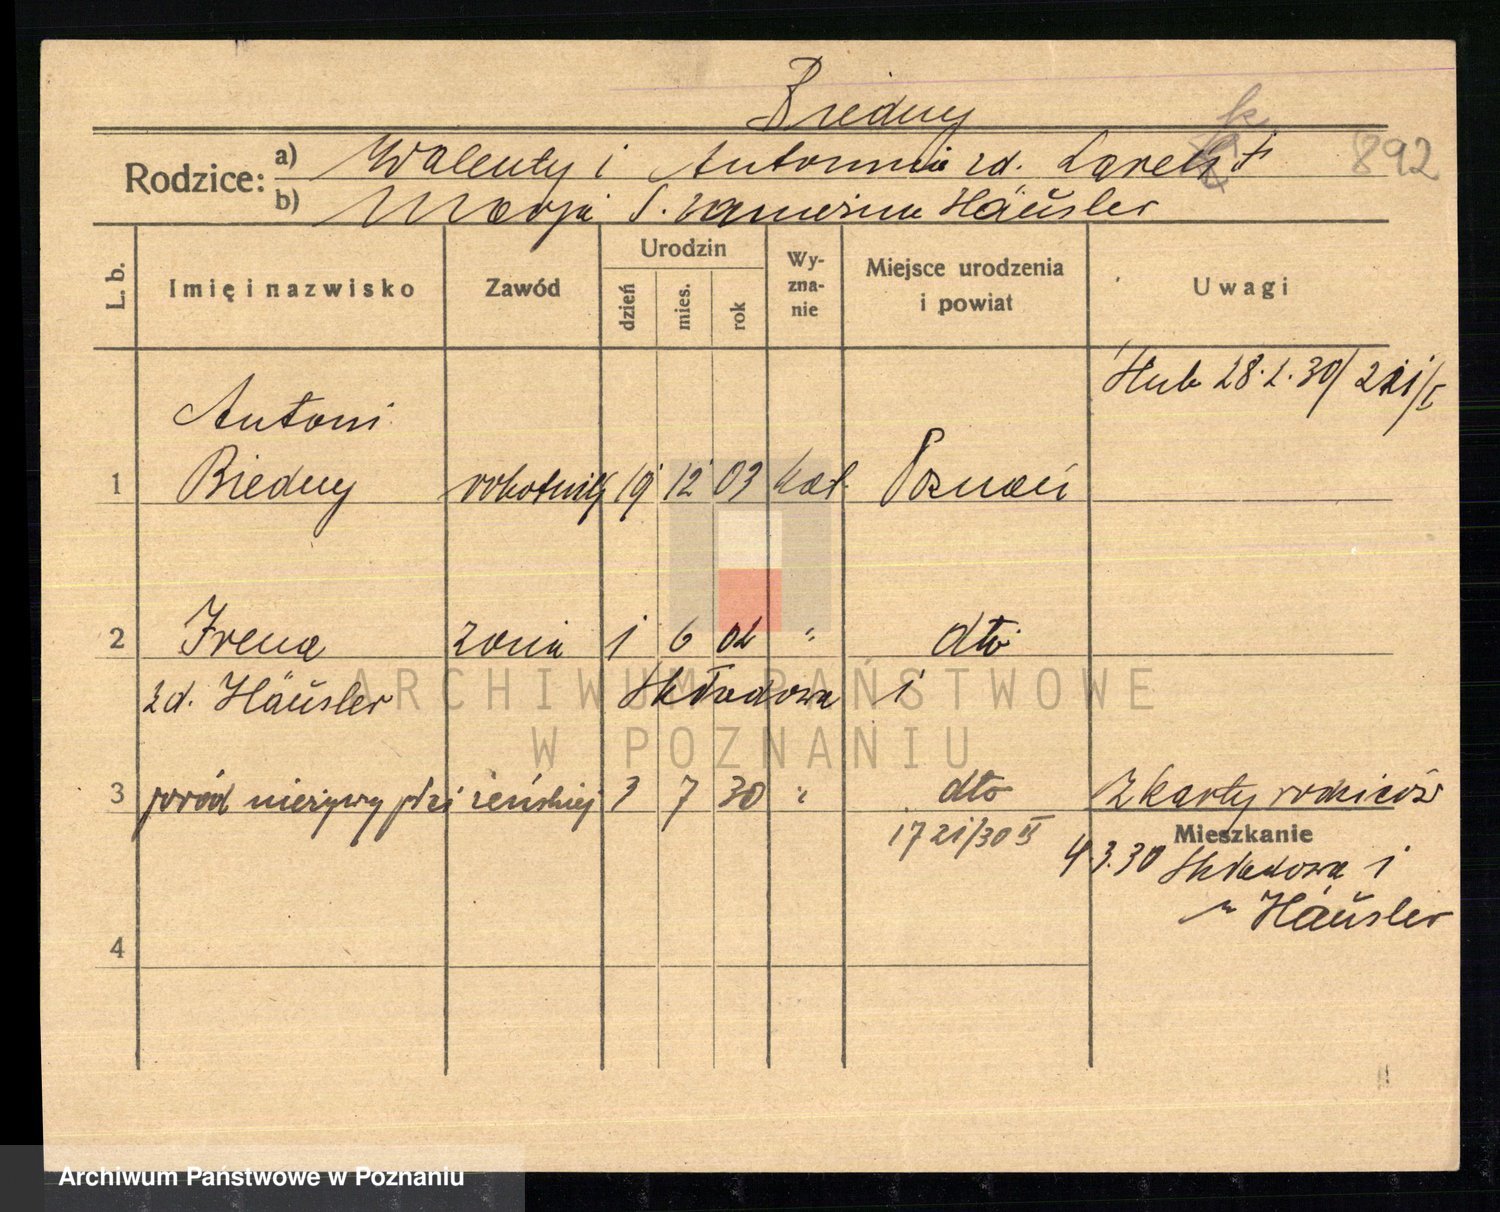 Biedny
892
Rodzice: a) Walenty i Antonina zd.
b) Marja S. zamężna Häusler
L. b. Imię i nazwisko Zawód Urodzin dzień mies. rok Wy-zna-nie Miejsce urodzenia i powiat Uwagi
ślub 28.2.30/
Antoni
1 Biedny robotnik 19 12 03 kat. Poznań
2 Irena żona 1 6 02 " dto
zd. Häusler Składowa 1
3 poród nieżywy płci żeńskiej 3 7 30 " dto Z karty rodziców
1721/30 II
Mieszkanie
4.3.30 Składowa 1
u Häusler
4
ARCHIWUM PAŃSTWOWE
W POZNANIU
Archiwum Państwowe w Poznaniu